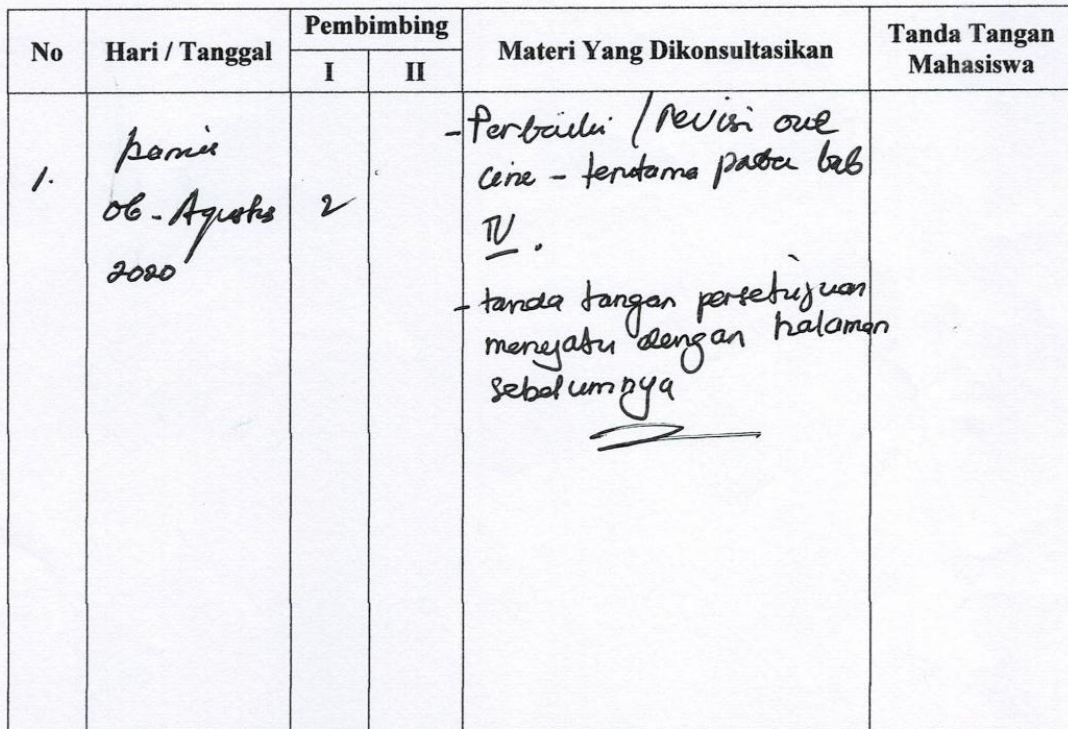 No Hari / Tanggal Pembimbing Materi Yang Dikonsultasikan Tanda Tangan
Mahasiswa
I II
1.
kamis
06 - Agustus
2020
2
- Perbaiki / revisi out
line - terutama pada bab
IV.
- tanda tangan persetujuan
menyatu dengan halaman
sebelumnya